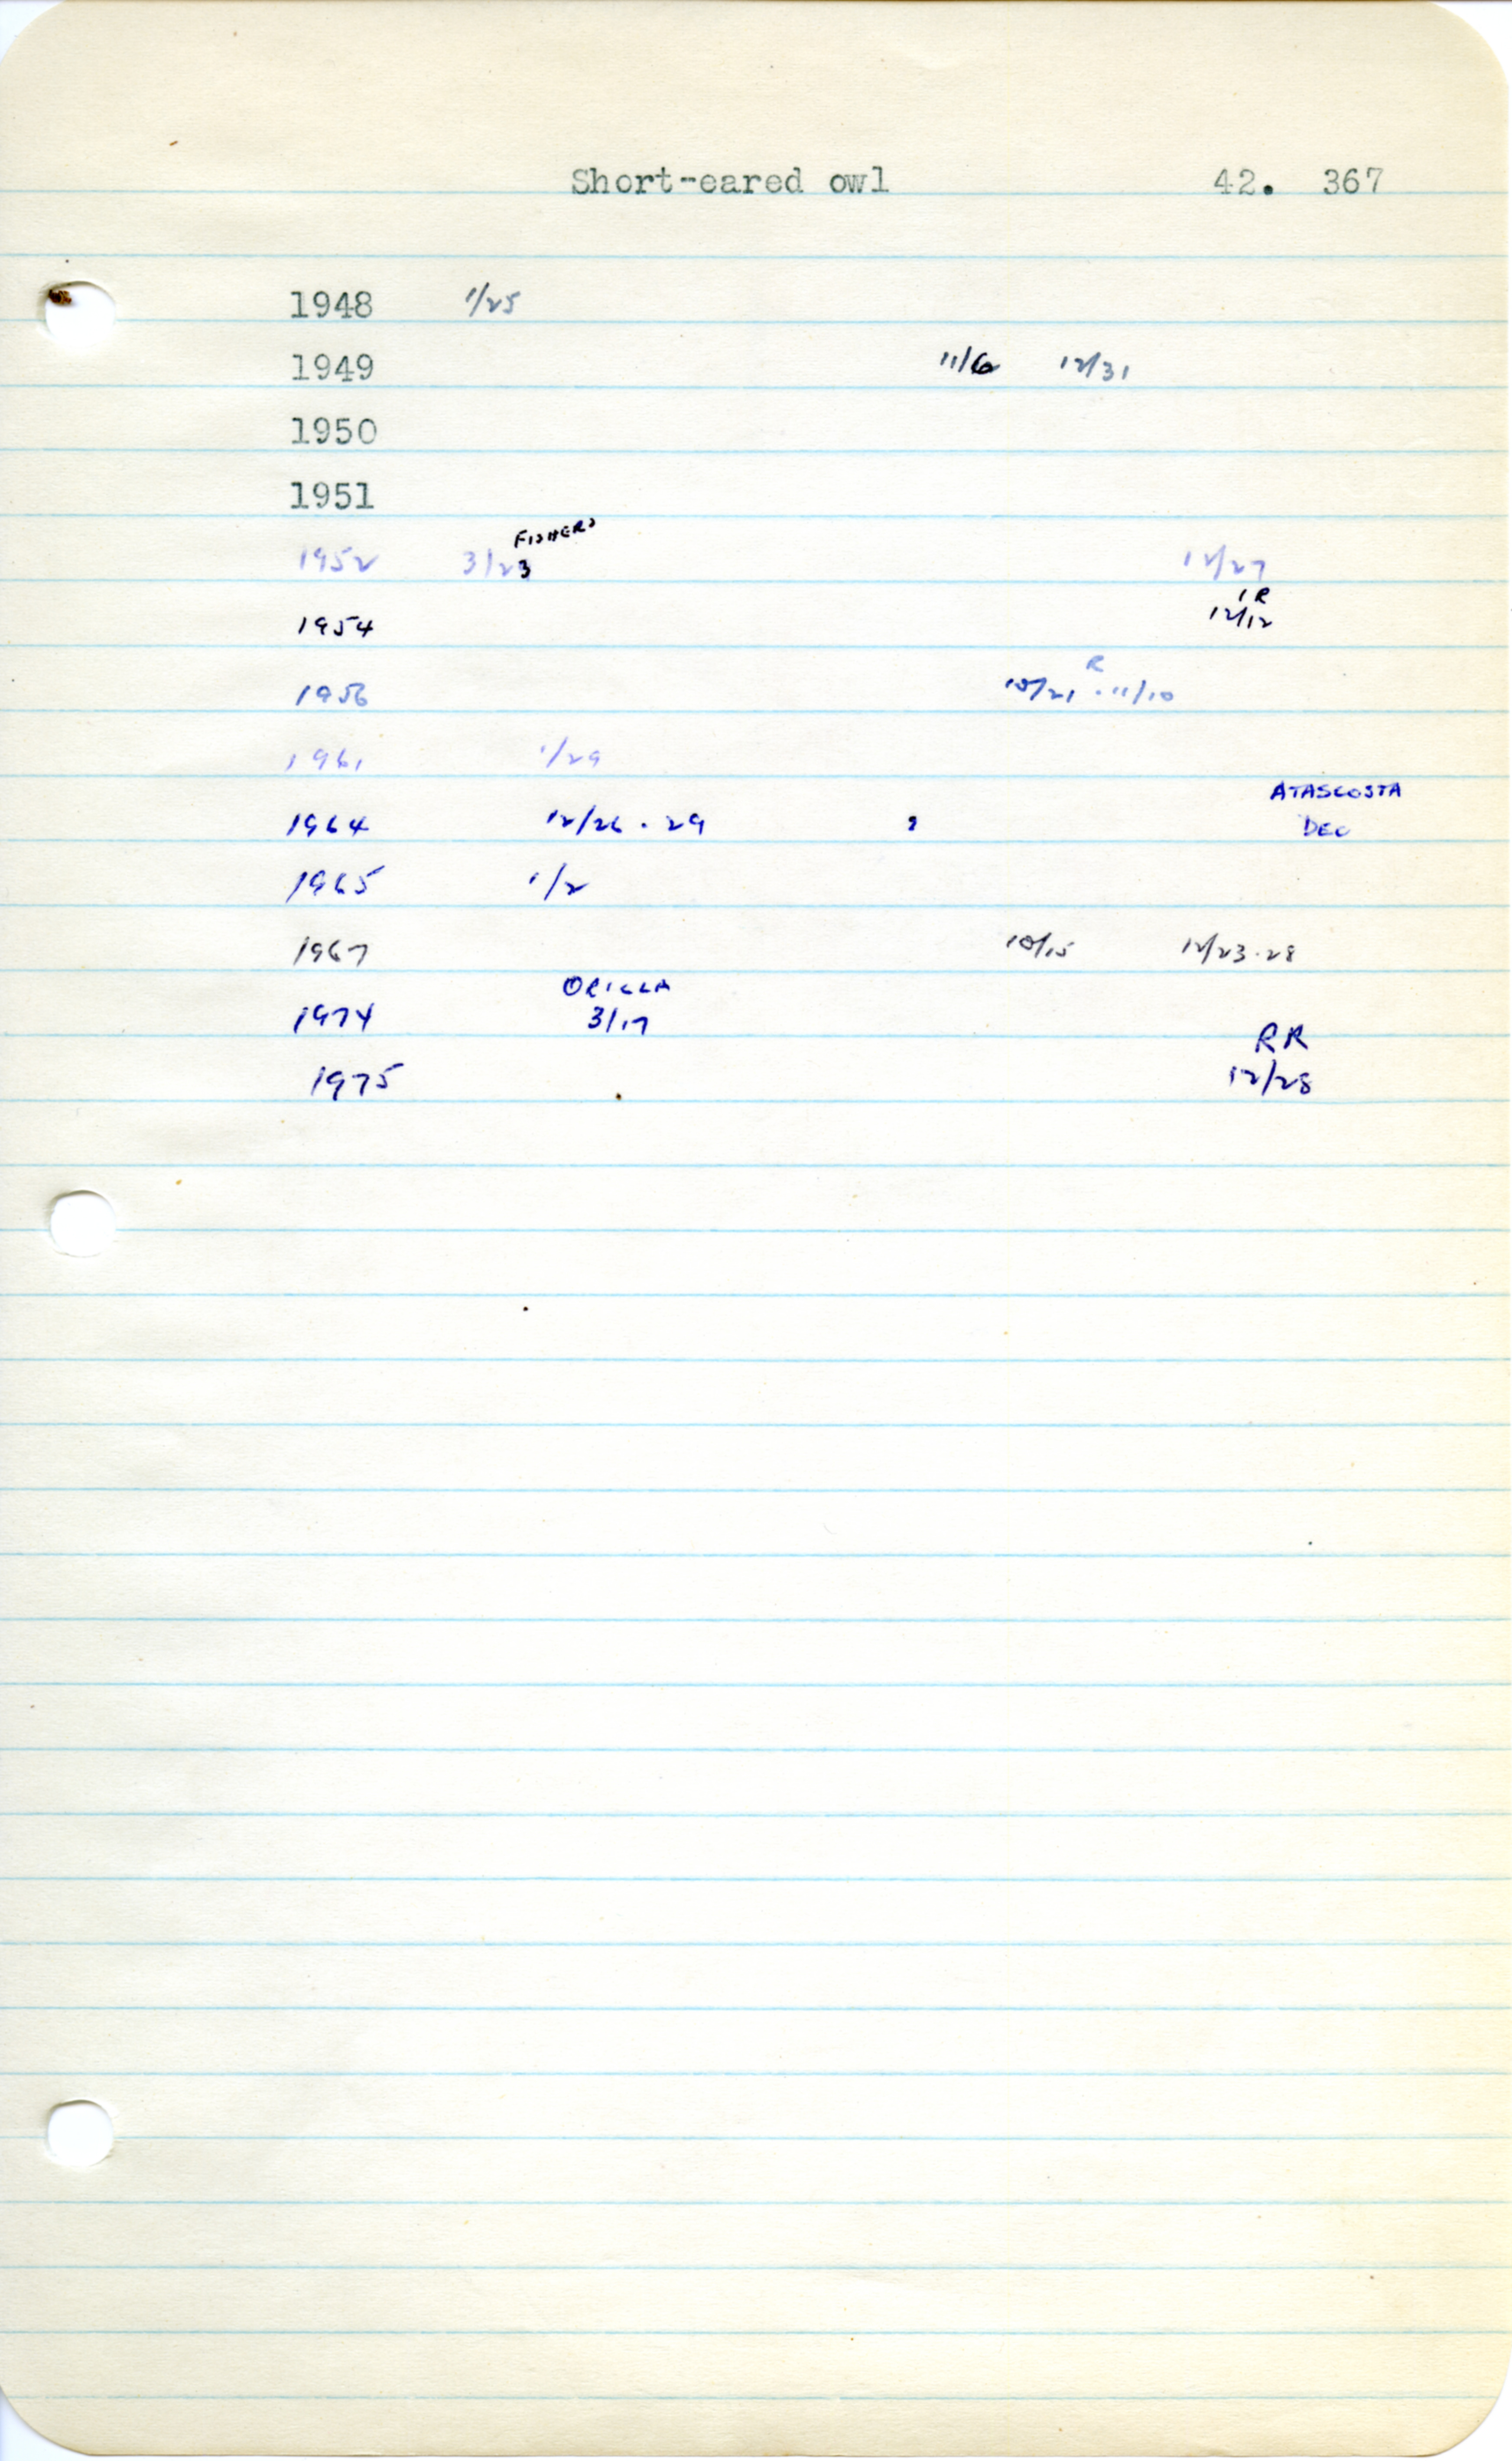 Short-eared owl 42. 367
1948 1/25
1949 11/6 12/31
1950
1951
FISHERS
1952 3/23 12/27
1R
1954 12/12
R
1956 10/21 . 11/10
1961 1/29
ATASCOSTA
1964 12/26 . 29 DEC
1965 1/2
1967 10/15 12/23.28
ORILLA
1974 3/17
RR
1975 12/28